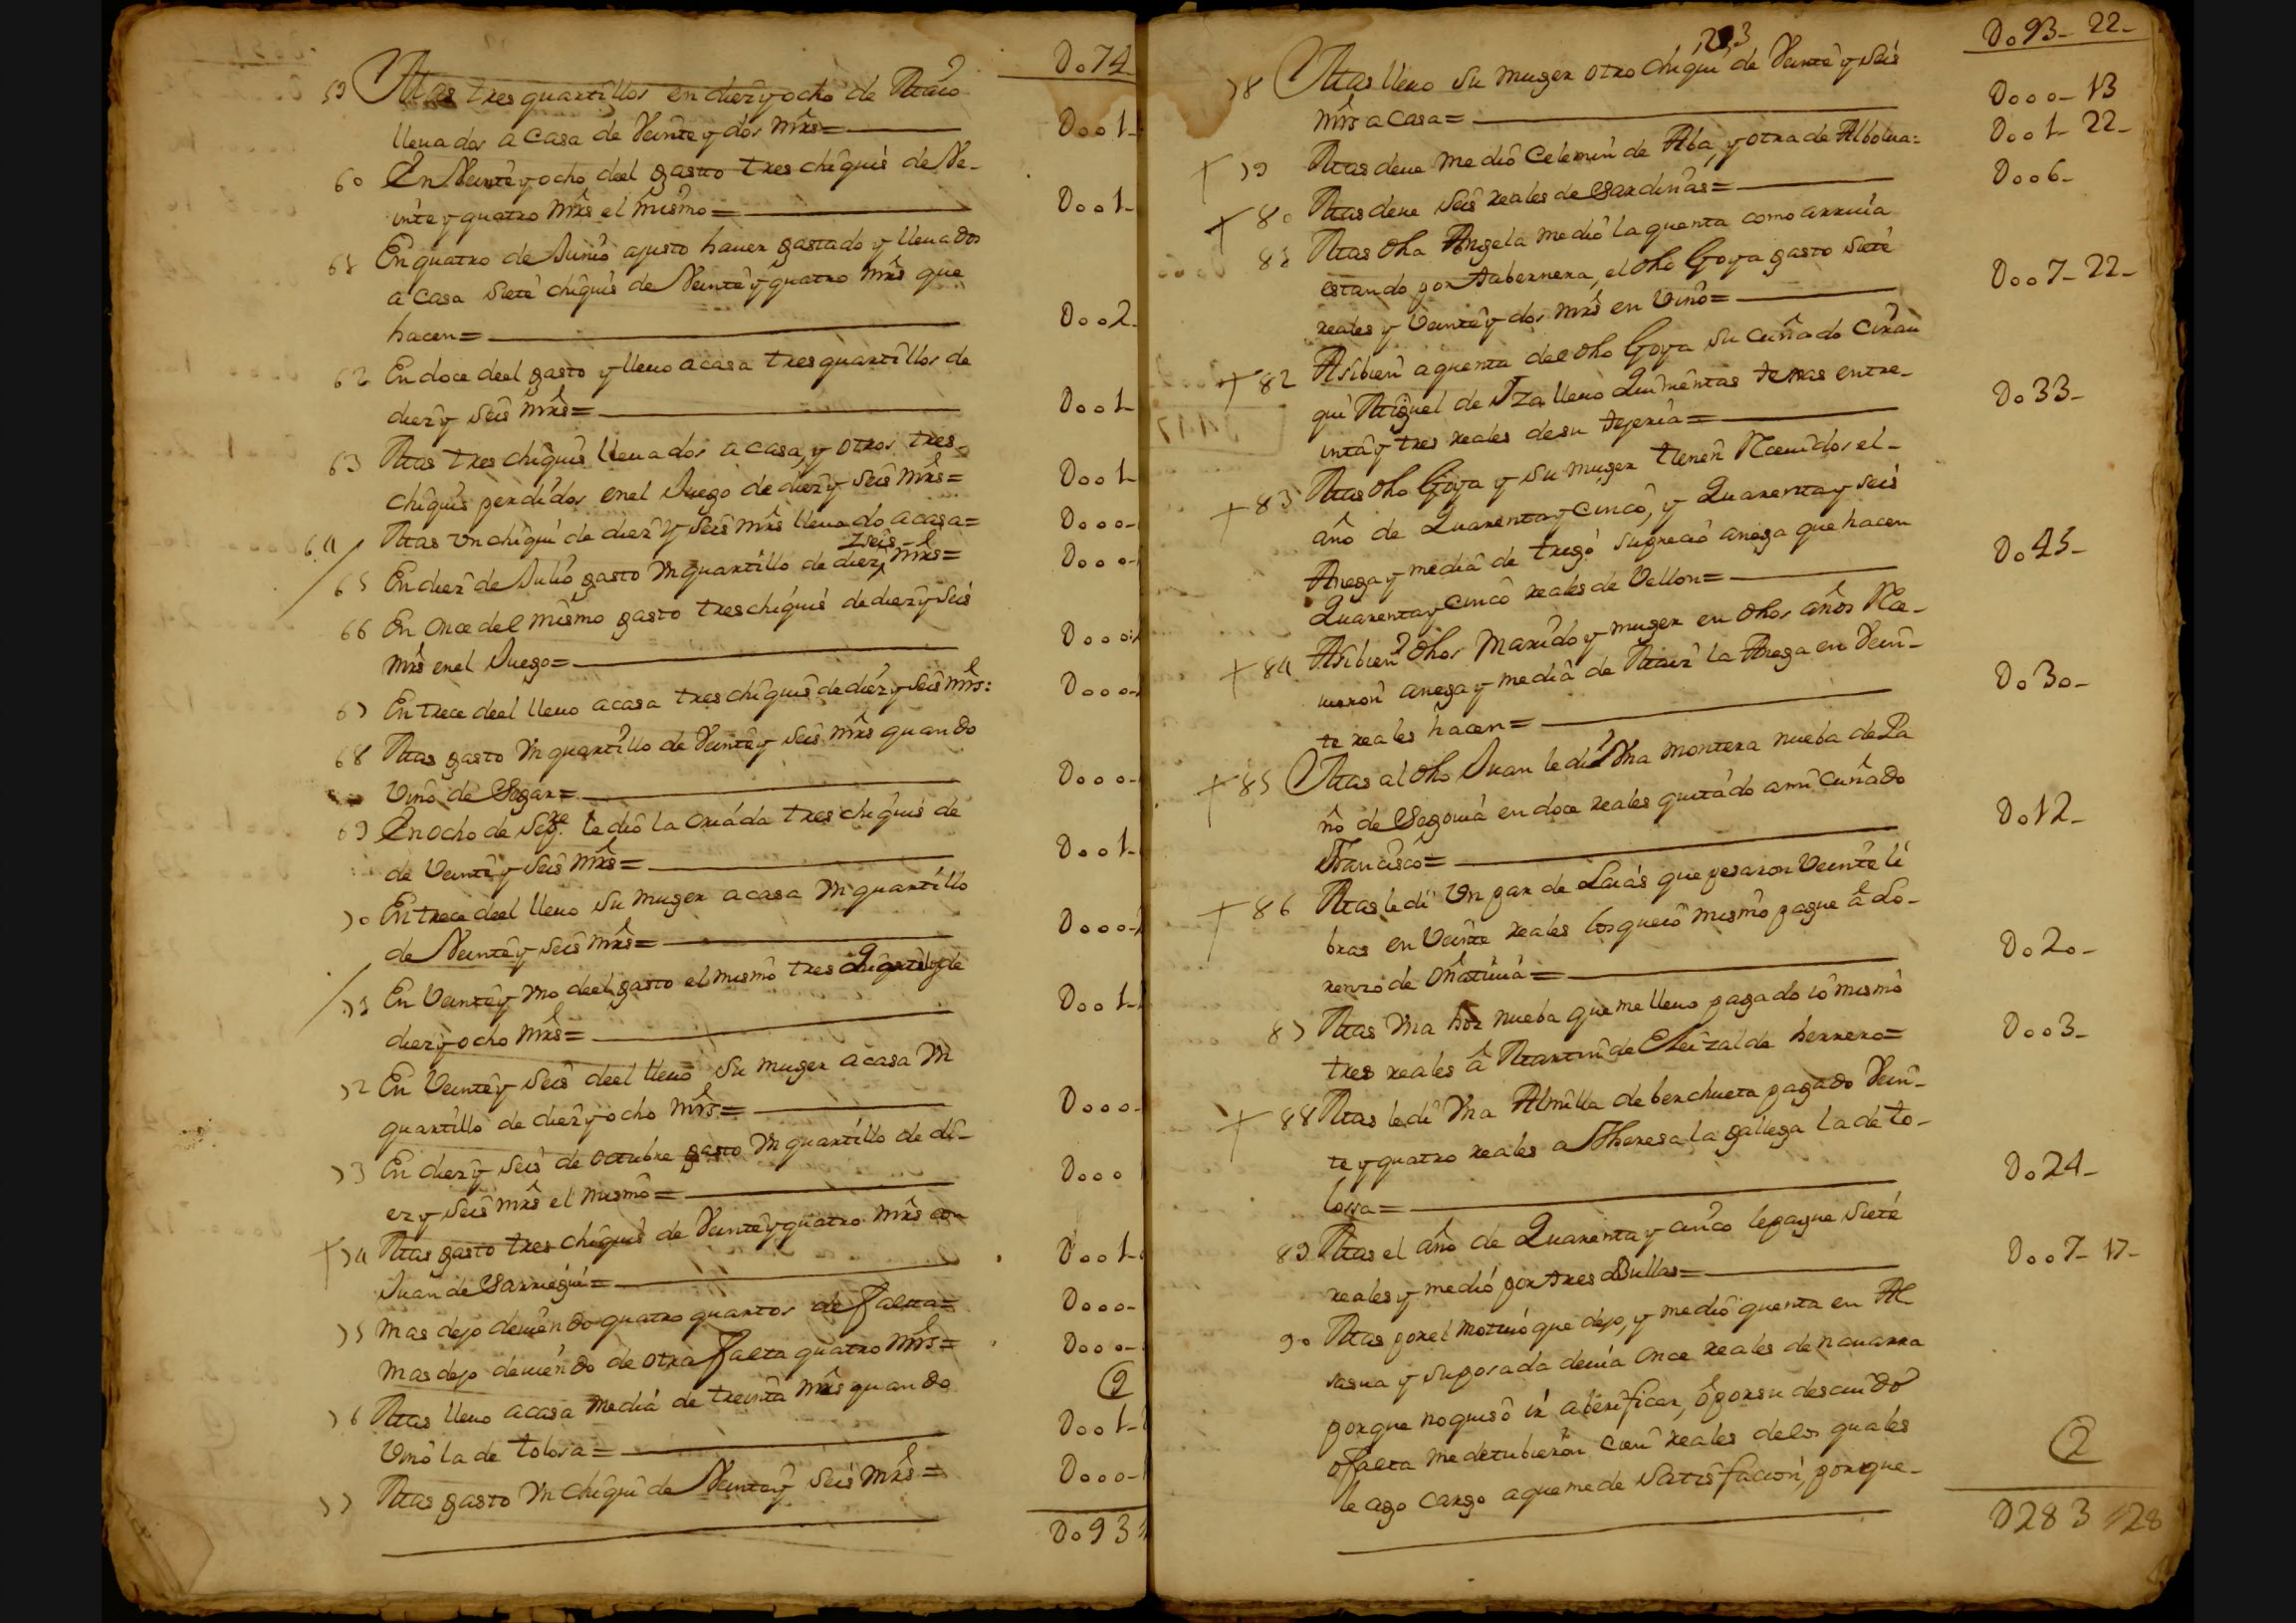 D o 74
59 Mas tres quartillos en diez y ocho de Maio
lleuados a casa de Veinte y dos mrs= D o o 1-
60 En Veinte y ocho deel gasto tres chiquis de Ve-
inte y quatro mrs el mismo= D o o 1-
61 En quatro de Junio ajusto hauer gastado y lleuados
a casa siete chiquis de Veinte y quatro mrs que
hacen= D o o 2-
62 En doce deel gasto y lleuo a casa tres quartillos de
diez y seis mrs= D o o 1-
63 Mas tres chiquis lleuados a casa, y otros tres
chiquis perdidos en el Juego de diez y seis mrs= D o o 1-
64 Mas vn chiqui de diez y seis mrs lleuado a casa= D o o o-
65 En diez de Julio gasto Vn quartillo de diez y seis mrs= D o o o-
66 En Once del mismo gasto tres chiquis de diez y seis
mrs en el Juego= D o o o-
67 En trece deel lleuo a casa tres chiquis de diez y seis mrs= D o o o-
68 Mas gasto Vn quartillo de Veinte y seis mrs quando
Vino de Segar= D o o o-
69 En ocho de Sepre le dio la criada tres chiquis de
de Veinte y seis mrs= D o o 1-
70 En trece deel lleuo su muger a casa Vn quartillo
de Veinte y seis mrs= D o o o-
71 En Veinte y Vno deel gasto el mismo tres quartillos de
diez y ocho mrs= D o o 1-
72 En Veinte y seis deel lleuo su muger a casa Vn
quartillo de diez y ocho mrs= D o o o-
73 En diez y seis de octubre gasto Vn quartillo de di-
ez y seis mrs el mismo= D o o o
+ 74 Mas gasto tres chiquis de Veinte y quatro mrs con
Juan de Sarriegui= D o o 1-
75 mas dejo deuiendo quatro quartos de falta= D o o o-
mas dejo deuiendo de otra falta quatro mrs= D o o o-
76 Mas lleuo a casa media de treinta mrs quando
Vino la de tolosa= D o o 1-
77 Mas gasto Vn chiqui de Veinte y seis mrs= D o o o-
D o 93
D o 93- 22-
78 Mas lleuo su muger otro chiqui de Veinte y seis
mrs a casa= D o o o- 13
+ 79 Mas deue medio Celemin de Aba, y otra de Albolua= D o o 1- 22-
+ 80 Mas deue seis reales de Sardinas= D o o 6-
81 Mas dha Angela me dio la quenta como arruia
estando por tabernera, el dho Goya gasto siete
reales y Veinte y dos mrs en Vino= D o o 7- 22-
+ 82 Asibien a quenta del dho Goya su cuñado Cirau
qui Miguel de Yza lleuo Quinientas tejas entre-
inta y tres reales de su tejeria= D o 33-
+ 83 Mas dho Goya y su muger tienen Reciuidos el-
año de Quarenta y cinco, y Quarenta y seis
Anega y media de trigo su precio anega que hacen
Quarenta y cinco reales de Vellon= D o 45-
+ 84 Asibien dhos Marido y muger en dhos años Rce-
uieron anega y media de Maiz la Anega en Vein-
te reales hacen= D o 30-
+ 85 Mas al dho Juan le di Vna montera nueba de Pa
ño de Segouia en doce reales quitado a mi cuñado
Francisco= D o 12-
+ 86 Mas le di Vn par de Laias que pesaron Veinte li
bras en Veinte reales los que io mismo pague â Lo-
renzo de Oñatiuia= D o 20-
87 Mas Vna hoz nueba que me lleuo pagado io mismo
tres reales â Martin de Eleizalde herrero= D o o 3-
+ 88 Mas le di Vna Almilla de berchueta pagado Vein-
te y quatro reales a Theresa la gallega la de to-
lossa= D o 24-
89 Mas el año de Quarenta y cinco le pague siete
reales y medio por tres Bullas= D o o 7- 17-
90 Mas por el motiuo que dejo, y me dio quenta en Al
sasua y su posada deuia Once reales de nauarra
porque no quiso ir a berificar, ô por su descuido
o falta me detubieron cien reales de los quales
le ago cargo a que me de Satisfacion, porque-
D 283 28